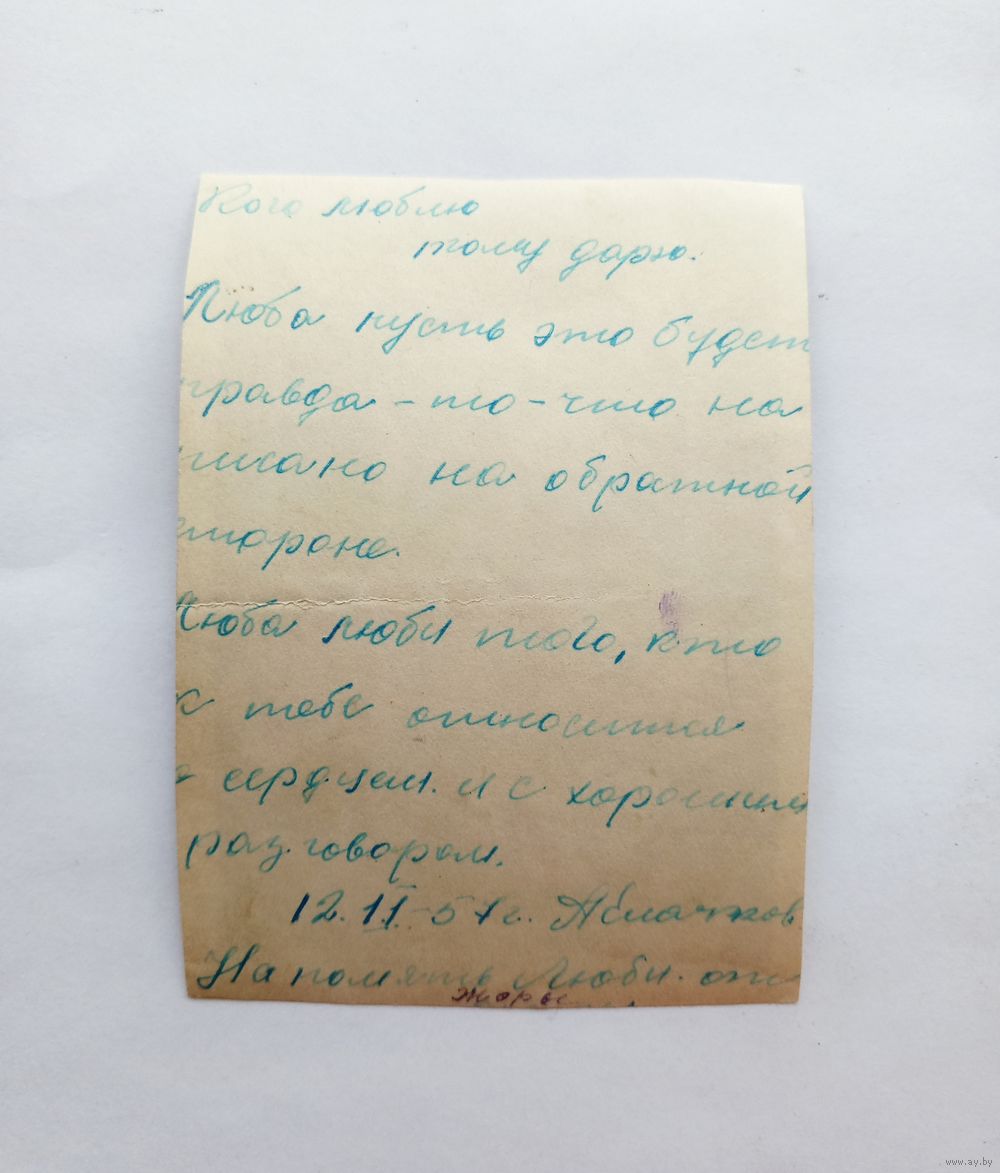 Кого люблю
тому дарю.
Люба пусть это будет
правда - то - что на
писано на обратной
стороне.
Люба люби того, кто
к тебе относится
с сердцем. и с хорошим
разговором.
12.II-57г. Аблачков
На помять Люби. от
жоры
www.ay.by